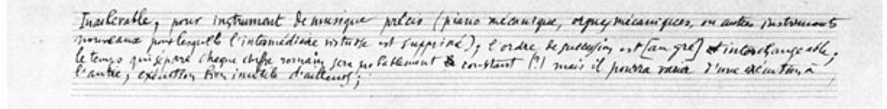 Inachevable ; pour instrument de musique précis (piano mécanique, orgues mécaniques, ou autres instruments
nouveaux pour lesquels l'intermédiaire virtuose est supprimé) ; l'ordre de succession est [au gré] interchangeable ;
le temps qui sépare chaque chiffre romain sera probablement constant (?) mais il pourra varier d'une exécution à
l'autre ; exécution bien inutile d'ailleurs ;